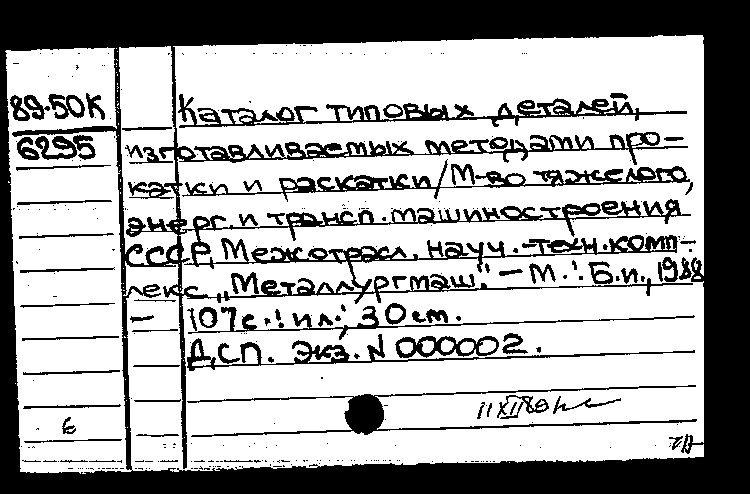 89-50К
6295
Каталог типовых деталей,
изготавливаемых методами про-
катки и раскатки/М-во тяжелого,
энерг. и трансп. машиностроения
СССР, Межотрасл. науч.-техн. комп-
лекс „Металлургмаш". - М.: Б.и., 1988
- 107 с.: ил.; 30 см.
ДСП. Экз. N 000002.
6